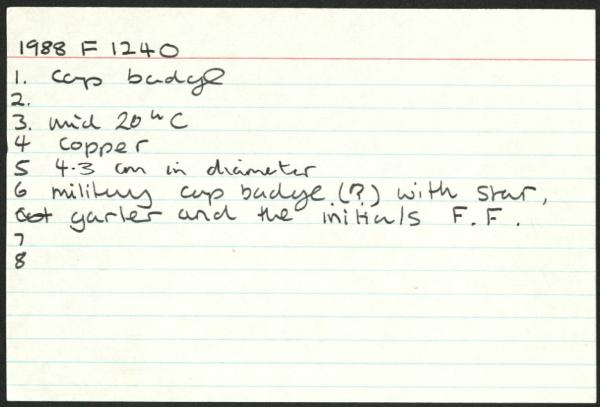 1988 F 1240
1. cap badge
2.
3. mid 20th C
4 copper
5 4.3 cm in diameter
6 military cap badge (?) with star,
garter and the initials F.F.
7
8